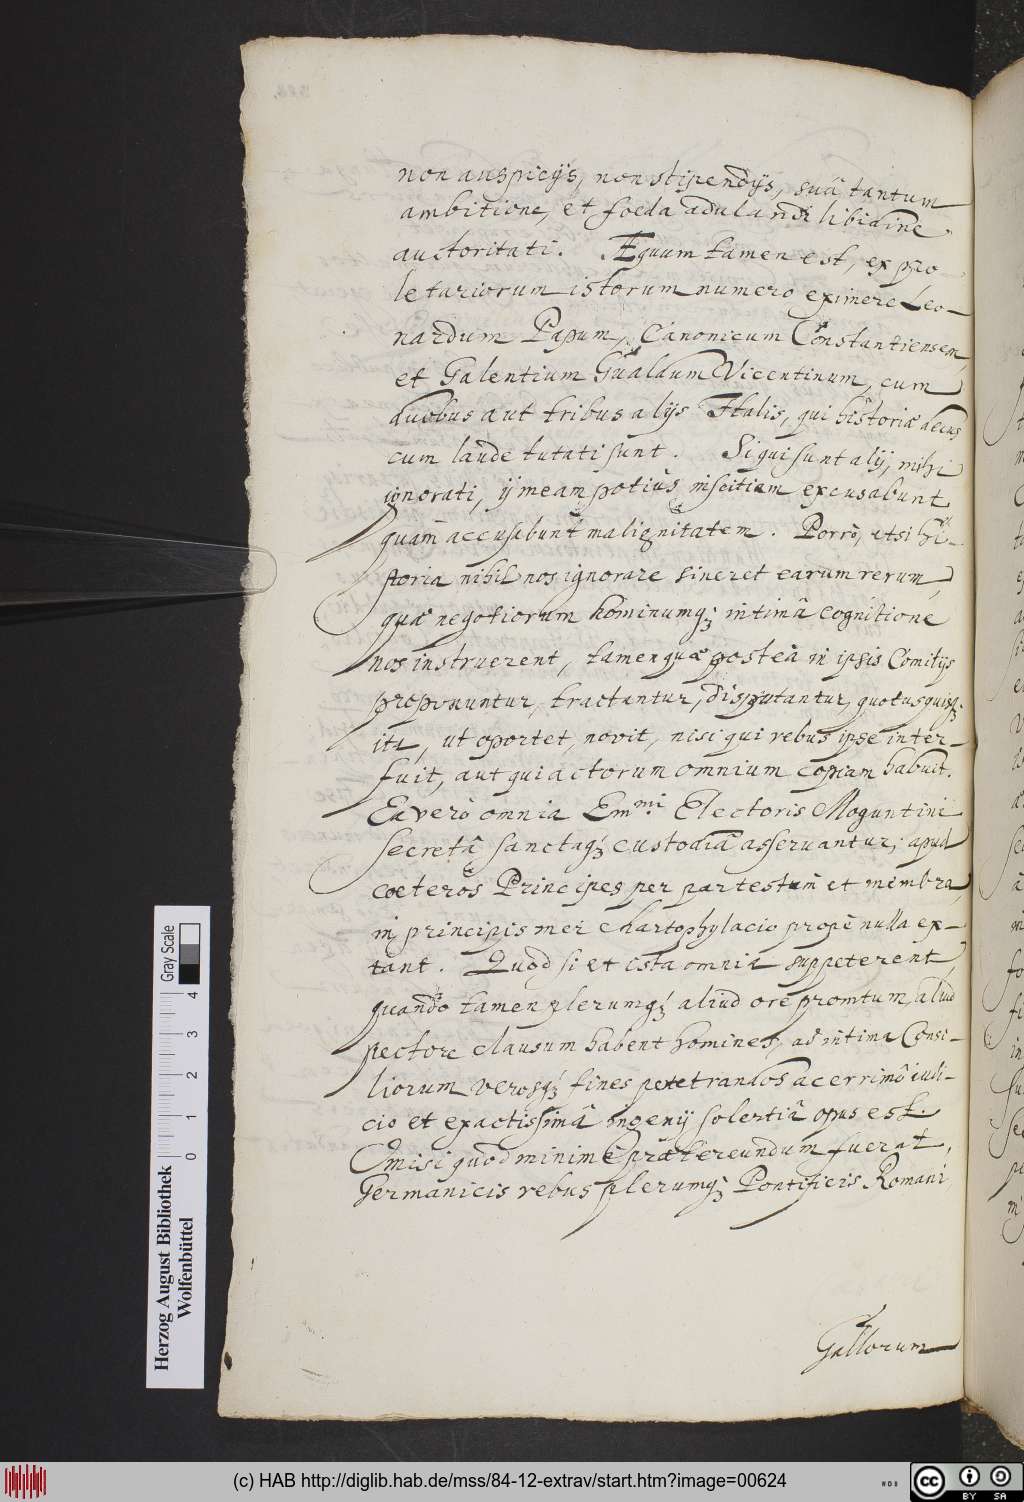 non auspicijs, non stipendijs, suâ tantum
ambitione, et foeda adulandi libidine
auctoritati. Æquum tamen est, ex pro
letariorum istorum numero eximere Leo-
nardum Papum, Canonicum Constantiensem,
et Galentium Gualdum Vicentinum, cum
duobus aut tribus alijs Italis, qui historiæ decus
cum laude tutati sunt. Si qui sunt alij, mihi
ignorati, ij meam potiùs inscitiam excusabunt
quam accusabunt malignitatem. Porrò, etsi hi-
storia nihil nos ignorare sineret earum rerum,
quæ negotiorum hominumq; intimâ cognitione
nos instruerent, tamen quæ posteà in ipsis Comitijs
proponuntur, tractantur, disputantur, quotusquisq;
ita, ut oportet, novit, nisi qui rebus ipse inter-
fuit, aut qui actorum omnium copiam habuit.
Ea verò omnia Em.mi Electoris Moguntini
secretâ sanctaq; custodiâ asservantur; apud
cœteros Principes per partes tum et membra,
in principis mei chartophylacio propè nulla ex-
tant. Quod si et ista omnia suppeterent,
quando tamen plerumq; aliud ore promtum, aliud
pectore clausum habent homines, ad intima Consi-
liorum verosq; fines petetrandos acerrimô iudi-
cio et exactissimâ ingenij solertiâ opus est.
Omisi quod minimè prætereundum fuerat,
Germanicis rebus plerumq; Pontificis Romani
Gallorum
Herzog August Bibliothek
Wolfenbüttel
Gray Scale
0 1 2 3 4
(c) HAB http://diglib.hab.de/mss/84-12-extrav/start.htm?image=00624
cc BY SA